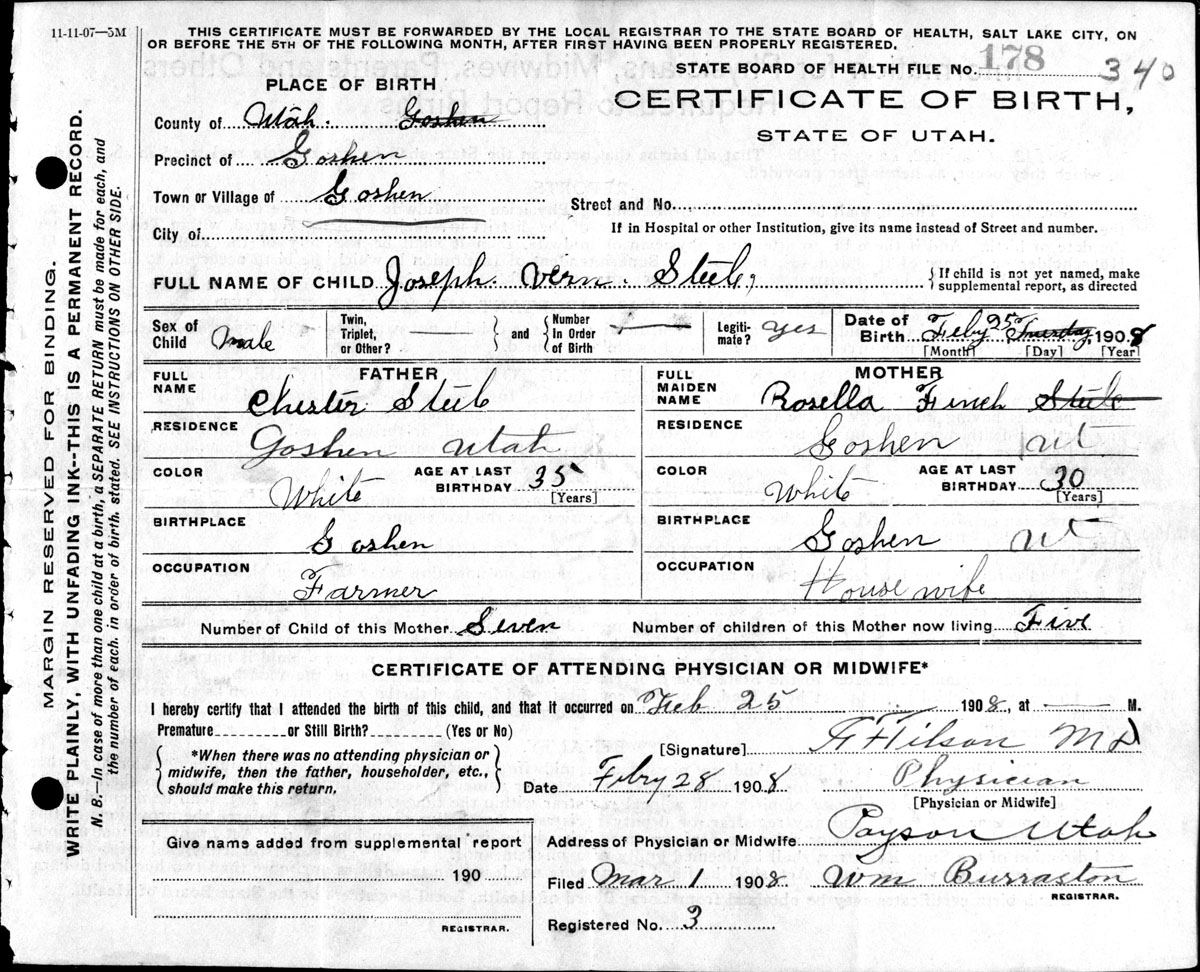 11-11-07—5M
THIS CERTIFICATE MUST BE FORWARDED BY THE LOCAL REGISTRAR TO THE STATE BOARD OF HEALTH, SALT LAKE CITY, ON
OR BEFORE THE 5TH OF THE FOLLOWING MONTH, AFTER FIRST HAVING BEEN PROPERLY REGISTERED.
STATE BOARD OF HEALTH FILE No. 178 340
CERTIFICATE OF BIRTH,
STATE OF UTAH.
PLACE OF BIRTH
County of Utah. Goshen
Precinct of Goshen
Town or Village of Goshen
Street and No.
City of
If in Hospital or other Institution, give its name instead of Street and number.
FULL NAME OF CHILD Joseph. Vern. Steele,
{If child is not yet named, make
supplemental report, as directed
Sex of Child Male
Twin, Triplet, or Other? { } and { Number In Order of Birth
Legiti-mate? yes
Date of Birth Feby 25 Tuesday, 1908
[Month] [Day] [Year]
FATHER
FULL NAME Chester Steele
RESIDENCE
Goshen Utah
COLOR White
AGE AT LAST BIRTHDAY 35
[Years]
BIRTHPLACE
Goshen
OCCUPATION
Farmer
MOTHER
FULL MAIDEN NAME Rosella Finch Steele
RESIDENCE
Goshen Ut
COLOR White
AGE AT LAST BIRTHDAY 30
[Years]
BIRTHPLACE
Goshen Ut
OCCUPATION
House wife
Number of Child of this Mother Seven
Number of children of this Mother now living Five
CERTIFICATE OF ATTENDING PHYSICIAN OR MIDWIFE*
I hereby certify that I attended the birth of this child, and that it occurred on Feb 25 1908, at — M.
Premature or Still Birth? (Yes or No)
{*When there was no attending physician or
midwife, then the father, householder, etc.,
should make this return.}
[Signature] Tilson MD
Date Febry 28 1908 Physician
[Physician or Midwife]
Give name added from supplemental report
190
REGISTRAR.
Address of Physician or Midwife Payson Utah
Filed Mar 1 1908. Wm Burraston
REGISTRAR.
Registered No. 3
MARGIN RESERVED FOR BINDING.
WRITE PLAINLY, WITH UNFADING INK--THIS IS A PERMANENT RECORD.
N. B.—In case of more than one child at a birth, a SEPARATE RETURN must be made for each, and
the number of each, in order of birth, stated. SEE INSTRUCTIONS ON OTHER SIDE.